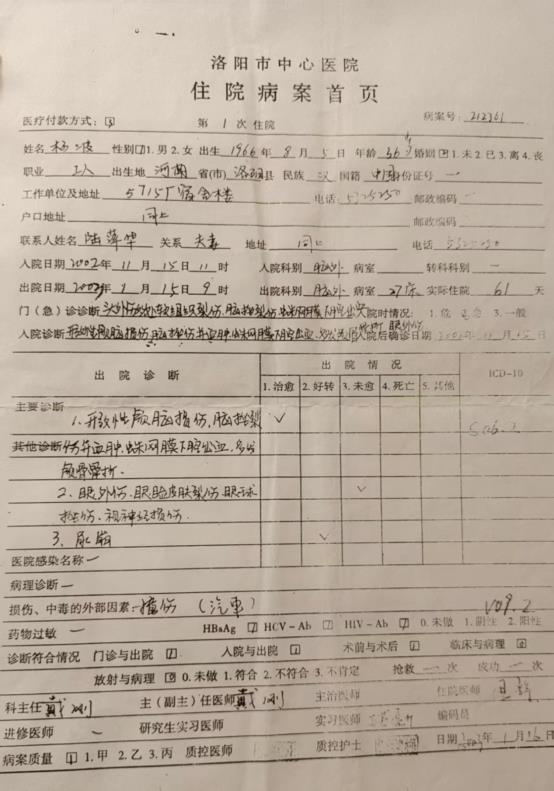 洛阳市中心医院
住院病案首页
医疗付款方式： 第 1 次 住院 病案号：212361
姓名 杨波 性别 1. 男 2. 女 出生 1966 年 8 月 5 日 年龄 36岁 婚姻 2 1. 未 2. 已 3. 离 4. 丧
职业 工人 出生地 河南 省(市) 洛阳 县 民族 汉 国籍 中国 身份证号 一
工作单位及地址 5715厂宿舍楼 电话：5325250 邮政编码
户口地址 同上 邮政编码
联系人姓名 陆萍华 关系 夫妻 地址 同上 电话 5325250
入院日期 2002 年 11 月 15 日 11 时 入院科别 脑外 病室 转科科别 一
出院日期 2003 年 1 月 15 日 9 时 出院科别 脑外 病室 27床 实际住院 61 天
门（急）诊诊断 头外伤 软组织裂伤.脑挫裂伤.蛛网膜下腔出血 入院时情况： 1. 危 2. 急 3. 一般
入院诊断 开放性颅脑损伤.脑挫伤并血肿.蛛网膜下腔出血. 骨折 眼外伤 入院后确诊日期 2002 年 11 月 15 日
出院诊断 出院情况 ICD-10
1. 治愈 2. 好转 3. 未愈 4. 死亡 5. 其他
主要诊断 1、开放性颅脑损伤，脑挫裂 ✓
其他诊断 伤并血肿.蛛网膜下腔出血，多发 S06.2
颅骨骨折.
2、眼外伤.眼睑皮肤裂伤.眼球 ✓
挫伤、视神经损伤.
3、尿崩 ✓
医院感染名称 一
病理诊断 一
损伤、中毒的外部因素： 撞伤 （汽车） V09.2
药物过敏 一 HBsAg HCV－Ab HIV－Ab 0. 未做 1. 阴性 2. 阳性
诊断符合情况 门诊与出院 入院与出院 术前与术后 临床与病理
放射与病理 0. 未做 1. 符合 2. 不符合 3. 不肯定 抢救 一 次 成功 一 次
科主任 戴刚 主（副主）任医师 戴刚 主治医师 住院医师
进修医师 一 研究生实习医师 实习医师 编码员
病案质量 1. 甲 2. 乙 3. 丙 质控医师 质控护士 日期 2003 年 1 月 16 日